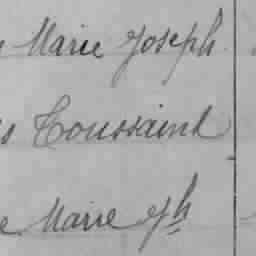 Marie Joseph
Toussaint
e Marie Jh